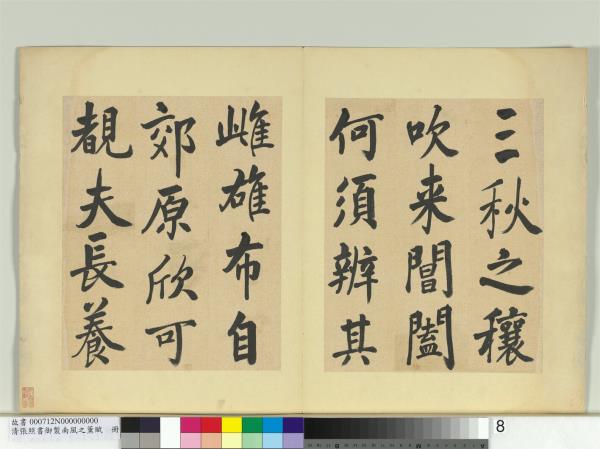 三秋之穰
吹来閶闔
何須辨其
雌雄布自
郊原欣可
覩夫長養
故書 000712N000000000
清張照書御製南風之薰賦 冊
8